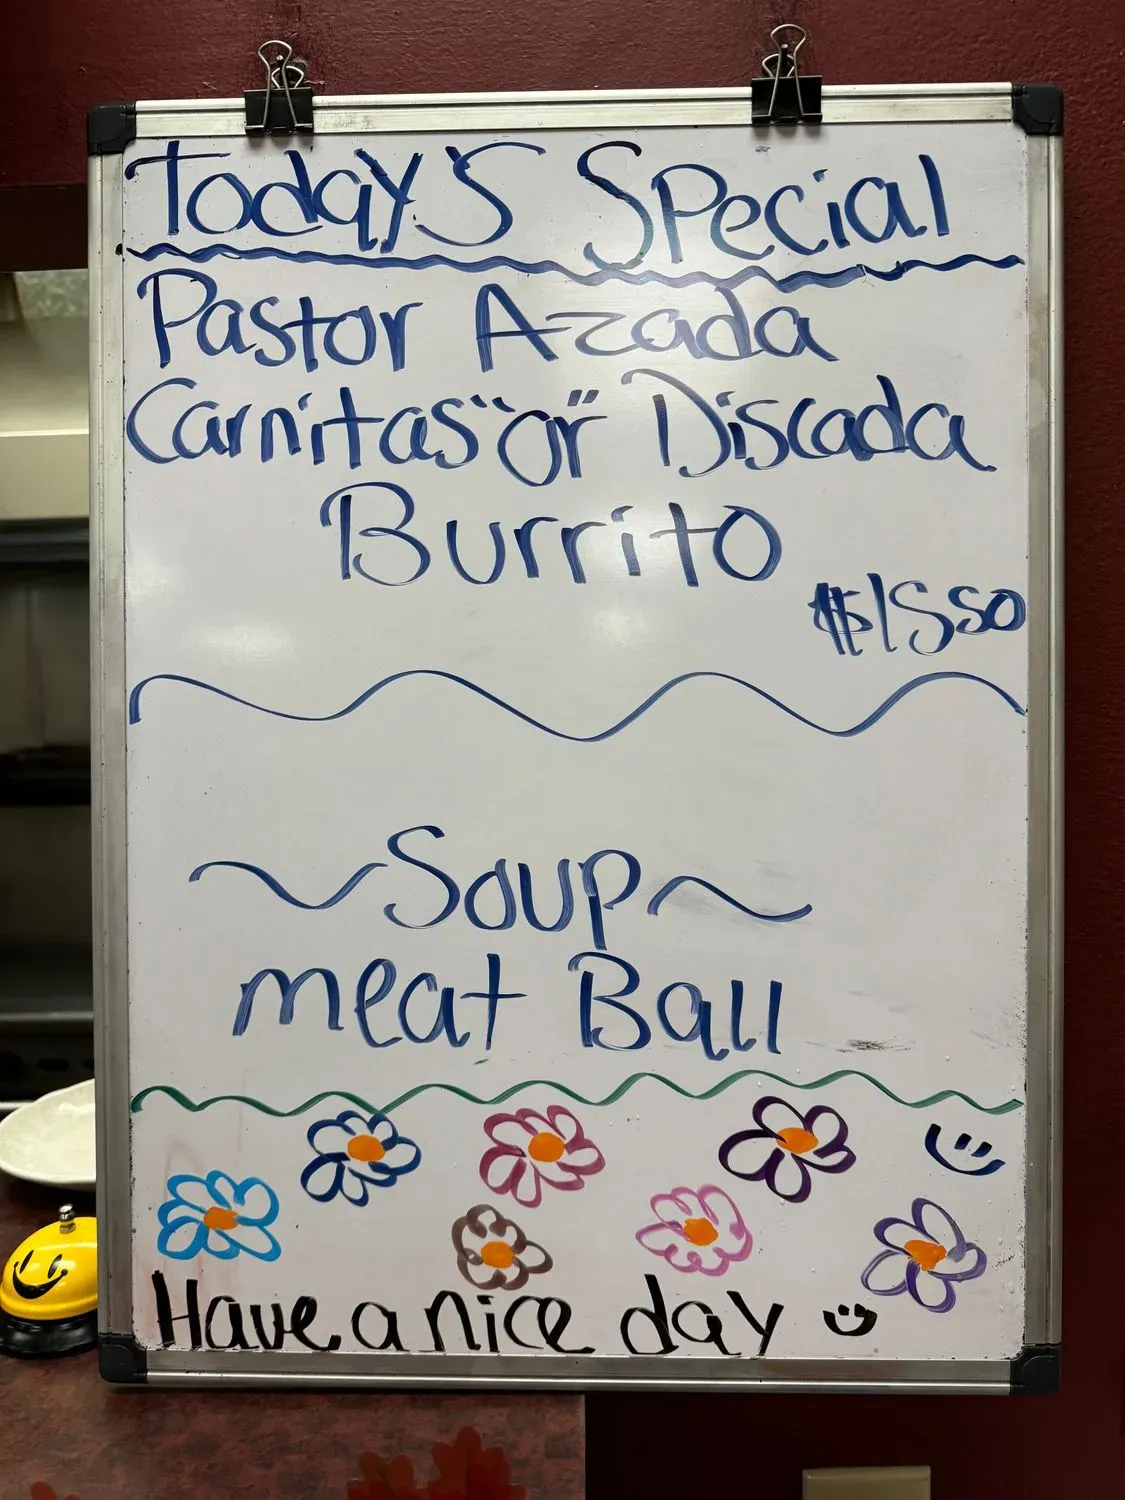 TodayS Special
Pastor Azada
Carnitas "or" Discada
Burrito
$15.50
~Soup~
meat Ball
Have a nice day